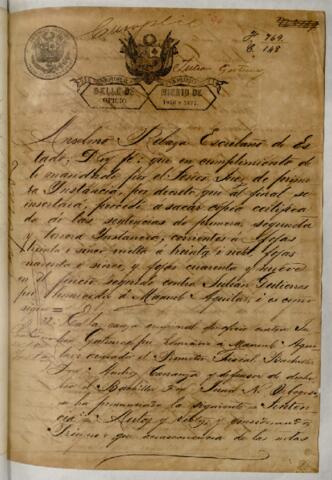 Cumplido
F. 769.
C. 148
Julian Gutierrez
SELLO DE
OFICIO
BIENIO DE
Anselmo Pelaez Escribano de Es-
tado; Doy fé: que en cumplimiento de
lo mandado por el Señor Juez de prime-
ra Instancia, por decreto que al final se
insertará, procedí a sacar copia certifica-
da de las sentencias de primera, segunda
y tercera Instancia, corrientes a fojas
treinta i seis vuelta a treinta i siete, fojas
cuarenta i nueve, y fojas cuarenta y nueve
en el juicio seguido contra Julián Gutierrez
por homicidio a Manuel Aguilar, i es como
sigue =
En la causa criminal de oficio contra Ju-
lian Gutierrez por homicidio a Manuel Agui-
lar
Fiscal, Bachiller
Don Andres
y defensor de dicho
reo el Bachiller Don Juan N.
se ha pronunciado la siguiente = Senten-
cia = Autos y vistos, y considerando =
Primero = que
de los autos